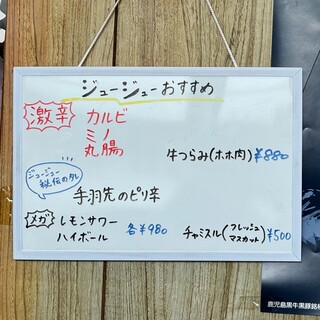 ジュージューおすすめ
激辛 カルビ
ミノ
丸腸
牛つらみ(ホホ肉)¥880
ジュージュー
秘伝のタレ
手羽先のピリ辛
メガ レモンサワー
ハイボール 各¥980
チャミスル(フレッシュマスカット)¥500
鹿児島黒牛黒豚銘柄